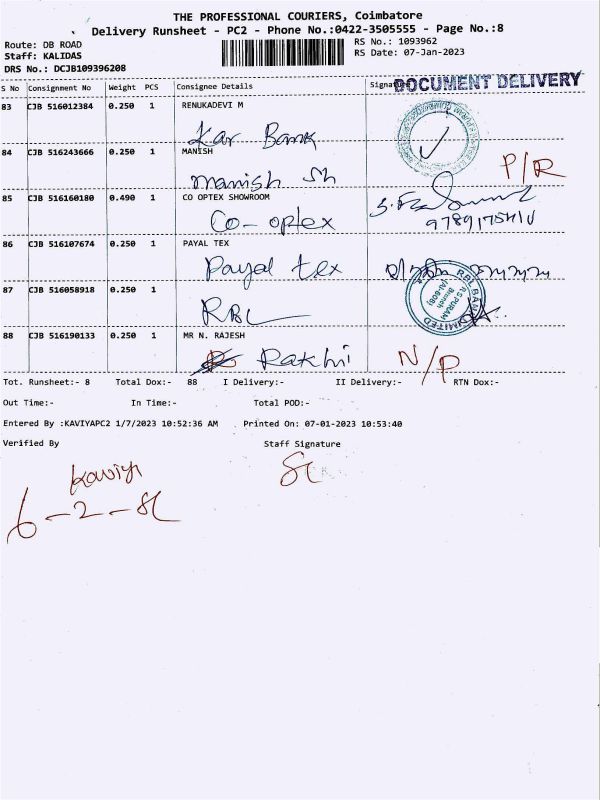 THE PROFESSIONAL COURIERS, Coimbatore
Delivery Runsheet - PC2 - Phone No.:0422-3505555 - Page No.:8
Route: DB ROAD RS No.: 1093962
Staff: KALIDAS RS Date: 07-Jan-2023
DRS No.: DCJB109396208
DOCUMENT DELIVERY
S No Consignment No Weight PCS Consignee Details
83 CJB 516012384 0.250 1 RENUKADEVI M
Kar Bank
84 CJB 516243666 0.250 1 MANISH
Manish P/R
85 CJB 516160180 0.490 1 CO OPTEX SHOWROOM
Co-optex
86 CJB 516107674 0.250 1 PAYAL TEX
Payal tex
87 CJB 516058918 0.250 1
RBL
RBL BANK LIMITED
R.S PURAM
Branch
88 CJB 516190133 0.250 1 MR N. RAJESH
Rakhi N/P
Tot. Runsheet:- 8 Total Dox:- 88 I Delivery:- II Delivery:- RTN Dox:-
Out Time:- In Time:- Total POD:-
Entered By :KAVIYAPC2 1/7/2023 10:52:36 AM Printed On: 07-01-2023 10:53:40
Verified By Staff Signature
Kaviya
6-2-